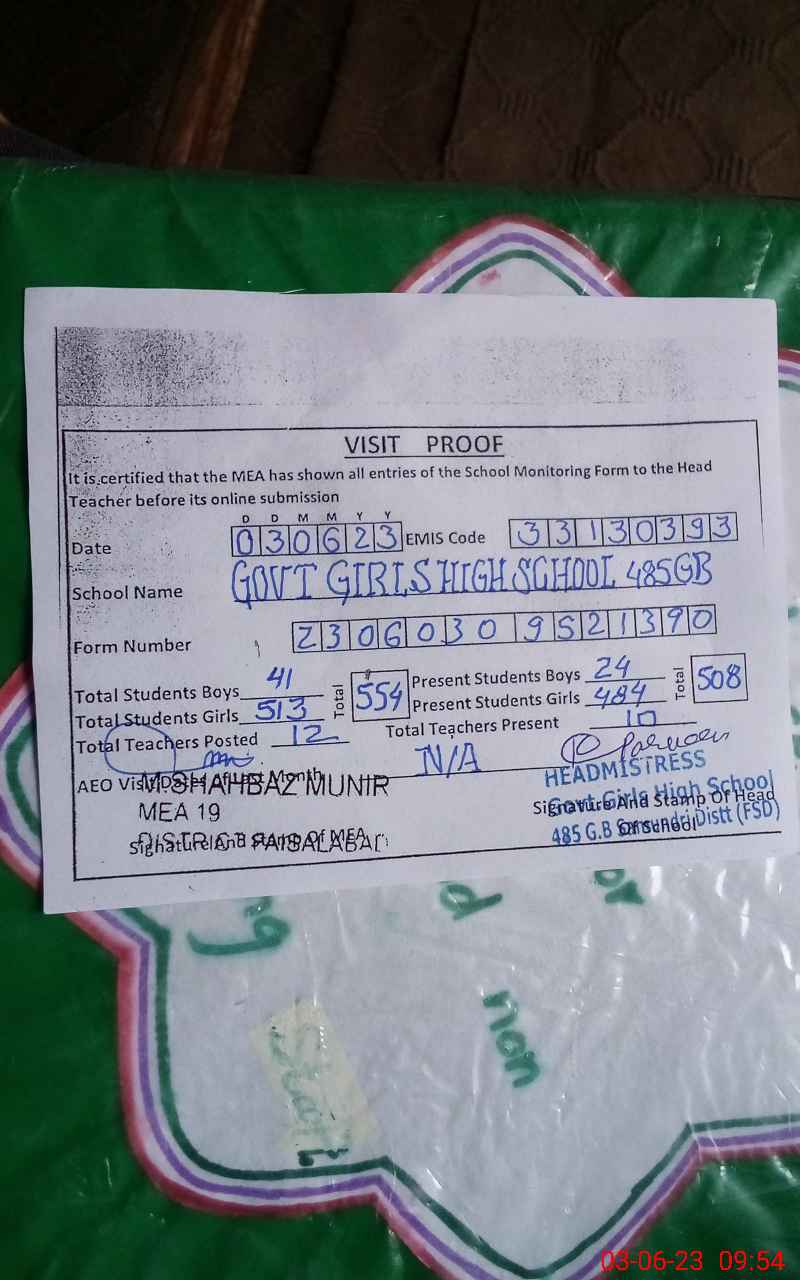 VISIT PROOF
It is certified that the MEA has shown all entries of the School Monitoring Form to the Head
Teacher before its online submission
D D M M Y Y
Date 030623 EMIS Code 33130393
School Name GOVT GIRLS HIGH SCHOOL 485GB
Form Number 2306030 9521390
Total Students Boys 41 Total 554 Present Students Boys 24 Total 508
Total Students Girls 513 Present Students Girls 484
Total Teachers Posted 12 Total Teachers Present 10
AEO Last Month N/A
SHAHBAZ MUNIR
MEA 19
FAISALABAD
Signature And Stamp Of MEA
HEADMISTRESS
Govt Girls High School
485 G.B Distt (FSD)
Signature And Stamp Of Head
Of School
non
03-06-23 09:54